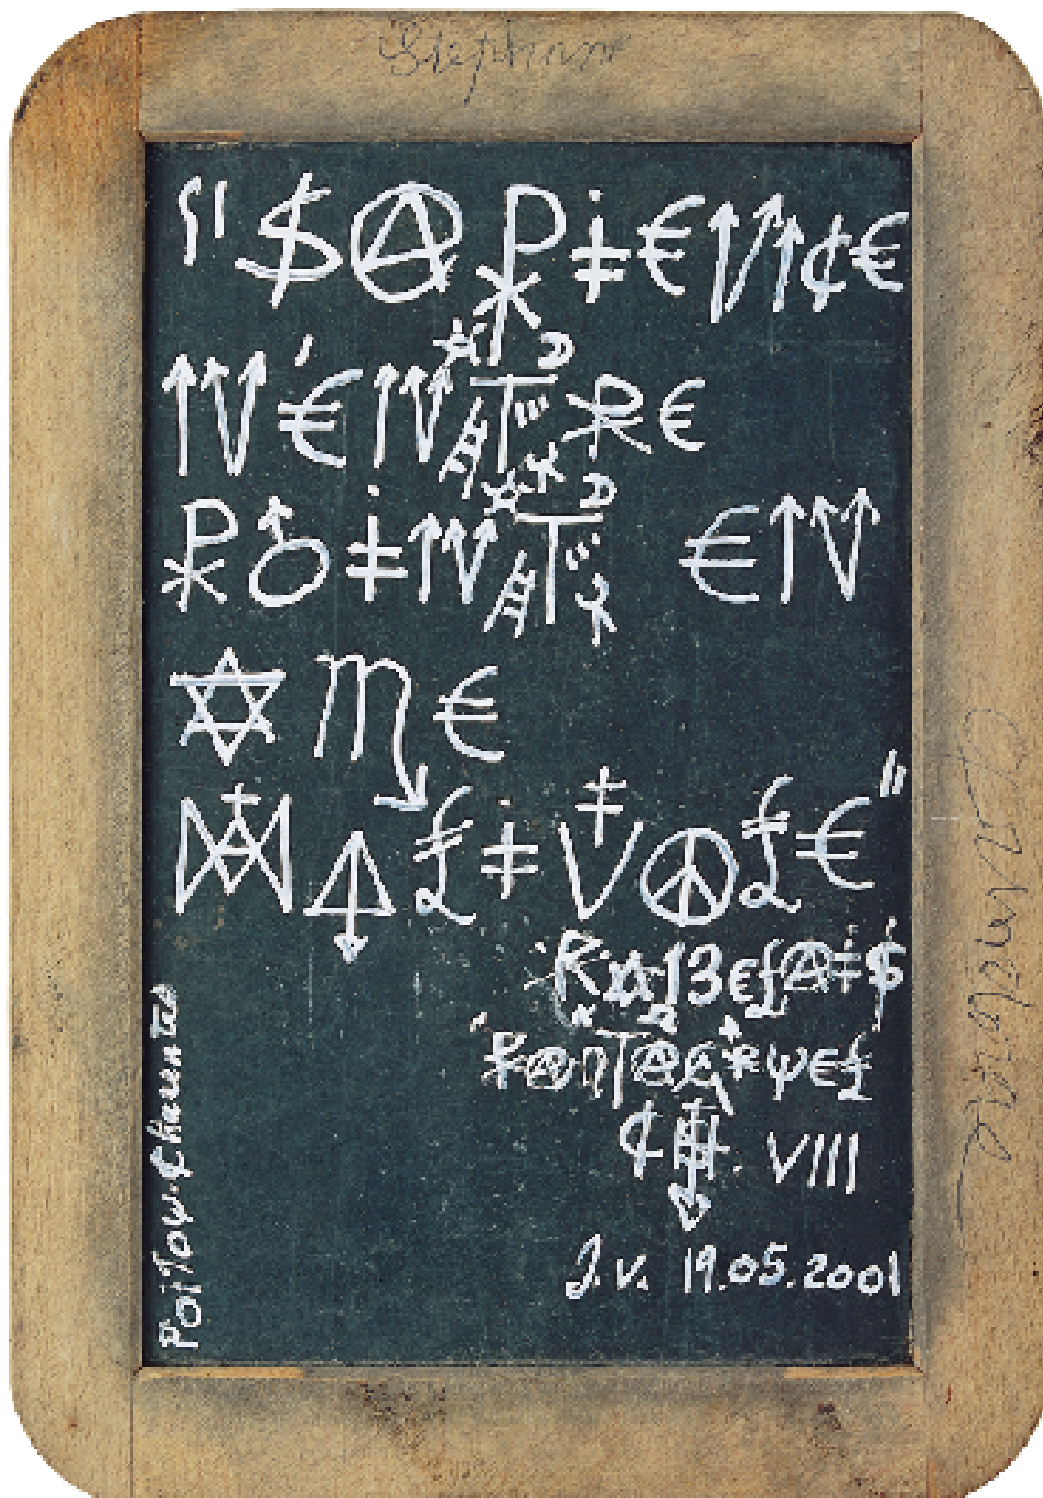 Stephan
"SAPIENCE
N'ENTRE
POINT EN
AME
MALIVOLE"
RABELAIS
PANTAGRUEL
CH. VIII
J.V. 19.05.2001
Poitou-Charentes